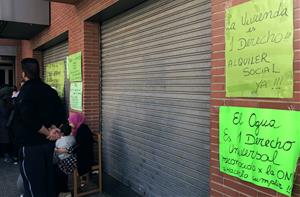 La Vivienda
es
1 Derecho
ALQUILER
SOCIAL
YA!!!
El Agua
Es 1 Derecho
Universal
reconocido x la ON